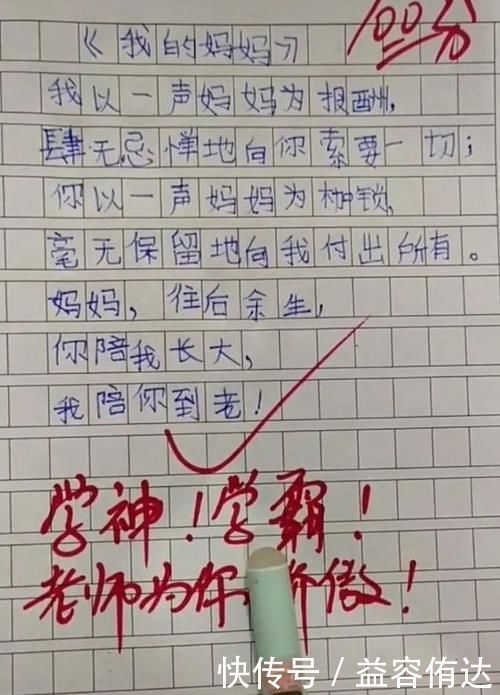 《我的妈妈》
100分
我以一声妈妈为报酬,
肆无忌惮地向你索要一切;
你以一声妈妈为枷锁,
毫无保留地向我付出所有。
妈妈,往后余生,
你陪我长大,
我陪你到老!
学神!学霸!
老师为你 傲!
快传号 / 益容侑达